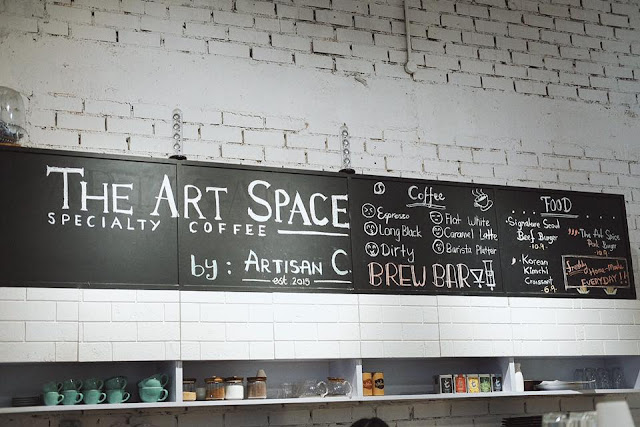 THE ART SPACE
SPECIALTY COFFEE
by: ARTISAN C.
est 2015
Coffee
Espresso
Long Black
Dirty
Flat White
Caramel Latte
Barista Platter
BREW BAR
FOOD
Signature Seoul
Beef Burger
10.9.
Korean
Kimchi
Croissant
6.9.
The Art Space
Pork Burger
10.9.
Freshly
Home-Made
EVERYDAY!!